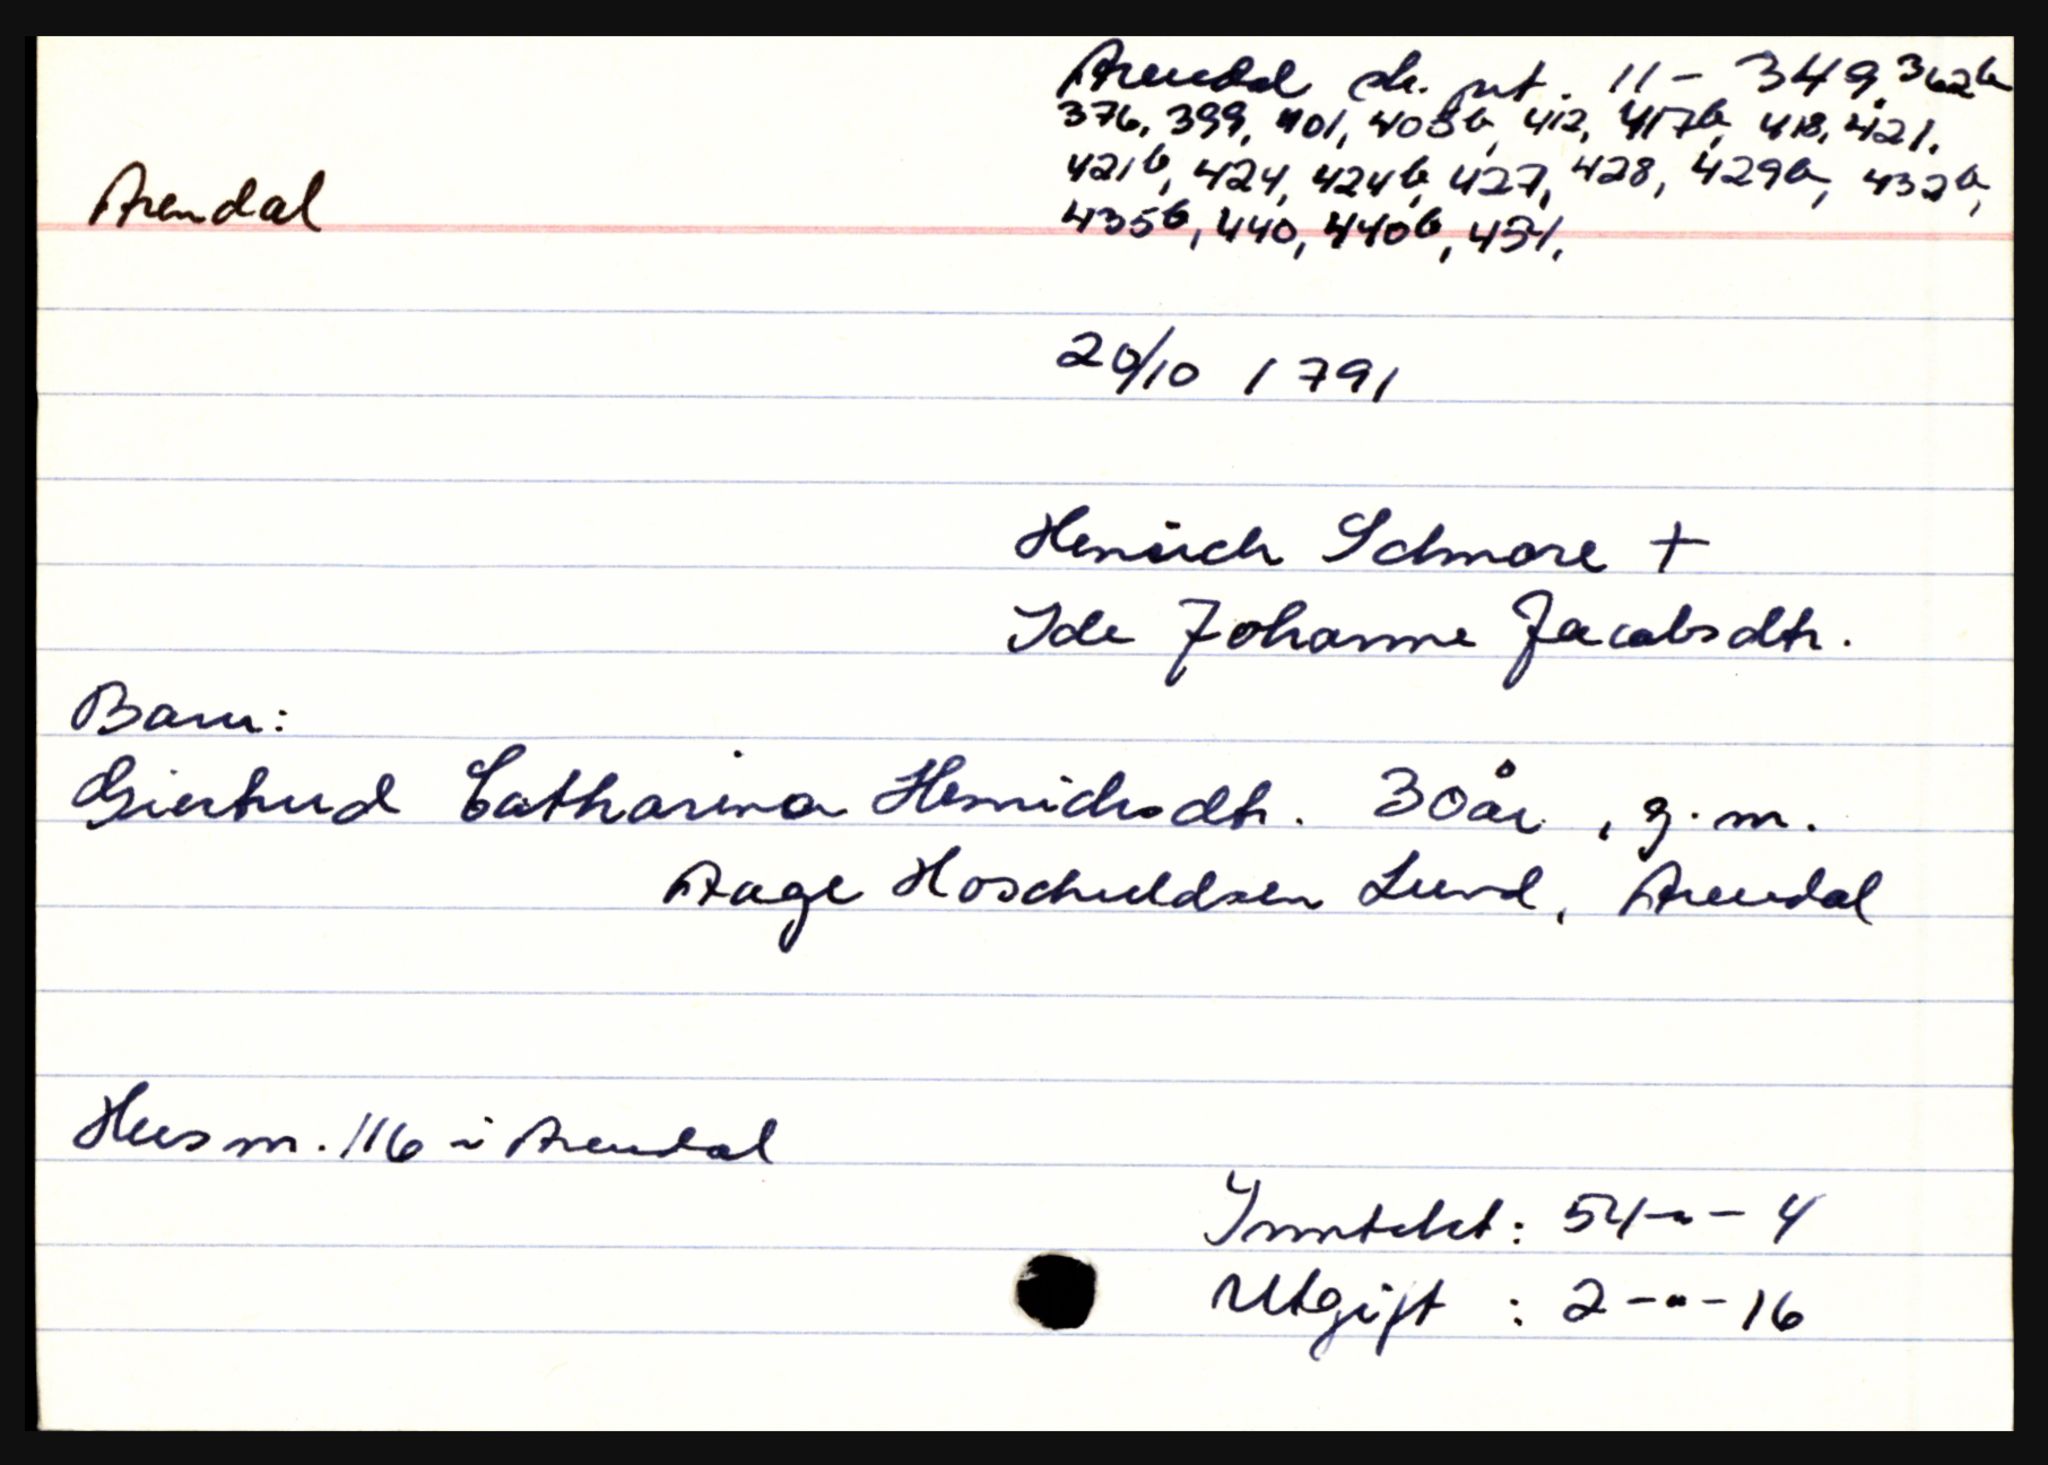 Arendal sk. prt. 11 - 349, 362b
376, 399, 401, 408b, 412, 417b, 418, 421.
421b, 424, 424b, 427, 428, 429b, 432b,
435b, 440, 440b, 451.
Arendal
20/10 1791
Henrich Schmore +
Ide Johanne Jacobsdtr.
Barn:
Giertrud Catharina Henrichsdtr. 30 år, g.m.
Aage Hoschuldsen Lund, Arendal
Hus nr. 116 i Arendal
Inntekt: 54 - " - 4
Utgift : 2 - " - 16